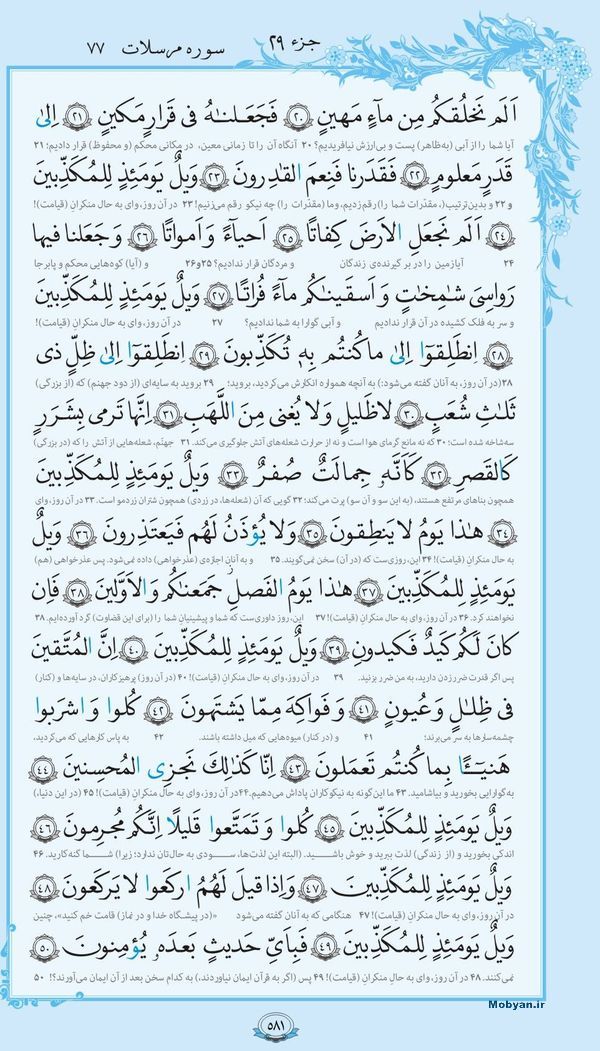 جزء ۲۹ سوره مرسلات ۷۷
اَلَم نَخلُقكُم مِن مآءٍ مَهينٍ ۲۰ فَجَعَلناهُ فى قَرارٍ مَكينٍ ۲۱ اِلىٰ
آیا شما را از آبی (به‌ظاهر) پست و بی‌ارزش نیافریدیم؟ ۲۰ آنگاه آن را تا زمانی معین، در مکانی محکم (و محفوظ) قرار دادیم؛ ۲۱
قَدَرٍ مَعلومٍ ۲۲ فَقَدَرنا فَنِعمَ القادِرونَ ۲۳ وَيلٌ يَومَئِذٍ لِلمُكَذِّبينَ
و ۲۲ و بدین ترتیب(، مقدّرات شما را) رقم زدیم، وما (مقدّرات را) چه نیکو رقم می‌زنیم! ۲۳ در آن روز، وای به حال منکرانِ (قیامت)!
۲۴ اَلَم نَجعَلِ الاَرضَ كِفاتًا ۲۵ اَحيآءً وَ اَمواتًا ۲۶ وَ جَعَلنا فيها
۲۴ آیا زمین را در بر گیرنده‌ی زندگان و مردگان قرار ندادیم؟ ۲۵و۲۶ و (آیا) کوه‌هایی محکم و پابرجا
رَواسِىَ شامِخاتٍ وَ اَسقَيناكُم مآءً فُراتًا ۲۷ وَيلٌ يَومَئِذٍ لِلمُكَذِّبينَ
و سر به فلک کشیده در آن قرار ندادیم و آبی گوارا به شما ندادیم؟ ۲۷ در آن روز، وای به حال منکرانِ (قیامت)!
۲۸ اِنطَلِقوا اِلىٰ ما كُنتُم بِه۪ تُكَذِّبونَ ۲۹ اِنطَلِقوا اِلىٰ ظِلٍّ ذى
۲۸(در آن روز، به آنان گفته می‌شود:) به آنچه همواره انکارش می‌کردید، بروید؛ ۲۹ بروید به سایه‌ای (از دود جهنم) که (از بزرگی)
ثَلاثِ شُعَبٍ ۳۰ لا ظَليلٍ وَ لا يُغنى مِنَ اللَّهَبِ ۳۱ اِنَّها تَرمى بِشَرَرٍ
سه‌شاخه شده است؛ ۳۰ که نه مانع گرمای هوا است و نه از حرارت شعله‌های آتش جلوگیری می‌کند. ۳۱ جهنّم، شعله‌هایی از آتش را که (در بزرگی)
كَالقَصرِ ۳۲ كَاَنَّهو جِمالَتٌ صُفرٌ ۳۳ وَيلٌ يَومَئِذٍ لِلمُكَذِّبينَ
همچون بناهای مرتفع هستند، (به این سو و آن سو) پرت می‌کند؛ ۳۲ گویی که آن (شعله‌ها، در زردی) همچون شتران زردمو است. ۳۳ در آن روز، وای
۳۴ هٰذا يَومُ لا يَنطِقونَ ۳۵ وَ لا يُؤذَنُ لَهُم فَيَعتَذِرونَ ۳۶ وَيلٌ
به حال منکرانِ (قیامت)! ۳۴ این، روزی‌ست که (در آن) سخن نمی‌گویند. ۳۵ و به آنان اجازه‌ی (عذرخواهی) داده نمی‌شود. پس عذرخواهی (هم)
يَومَئِذٍ لِلمُكَذِّبينَ ۳۷ هٰذا يَومُ الفَصلِ جَمَعناكُم وَ الاَوَّلينَ ۳۸ فَاِن
نخواهند کرد. ۳۶ در آن روز، وای به حال منکرانِ (قیامت)! ۳۷ این، روز داوری‌ست که شما و پیشینیان شما را (برای این قضاوت) گرد آورده‌ایم. ۳۸
كانَ لَكُم كَيدٌ فَكيدونِ ۳۹ وَيلٌ يَومَئِذٍ لِلمُكَذِّبينَ ۴۰ اِنَّ المُتَّقينَ
پس اگر قدرت ضرر زدن دارید، به من ضرر بزنید. ۳۹ در آن روز، وای به حال منکرانِ (قیامت)! ۴۰ (در آن روز،) پرهیزکاران، در سایه‌ها و (کنار)
فى ظِلالٍ وَ عُيونٍ ۴۱ وَ فَواكِهَ مِمّا يَشتَهونَ ۴۲ كُلوا وَ اشرَبوا
چشمه‌سارها به سر می‌برند؛ ۴۱ و (در کنار) میوه‌هایی که میل داشته باشند. ۴۲ به پاس کارهایی که می‌کردید،
هَنيٓئًا بِما كُنتُم تَعمَلونَ ۴۳ اِنّا كَذٰلِكَ نَجزِى المُحسِنينَ ۴۴
به‌گوارایی بخورید و بیاشامید. ۴۳ ما این‌گونه به نیکوکاران پاداش می‌دهیم.۴۴ در آن روز، وای به حال منکرانِ (قیامت)! ۴۵ (در این دنیا،)
وَيلٌ يَومَئِذٍ لِلمُكَذِّبينَ ۴۵ كُلوا وَ تَمَتَّعوا قَليلًا اِنَّكُم مُجرِمونَ ۴۶
اندکی بخورید و (از زندگی) لذت ببرید و خوش باشید. (البته این لذت‌ها، سودی به حال‌تان ندارد؛ زیرا) شما گنه‌کارید. ۴۶
وَيلٌ يَومَئِذٍ لِلمُكَذِّبينَ ۴۷ وَ اِذا قيلَ لَهُمُ اركَعوا لا يَركَعونَ ۴۸
در آن روز، وای به حال منکرانِ (قیامت)! ۴۷ هنگامی که به آنان گفته می‌شود «(در پیشگاه خدا و در نماز) قامت خم کنید»، چنین
وَيلٌ يَومَئِذٍ لِلمُكَذِّبينَ ۴۹ فَبِاَىِّ حَديثٍ بَعدَه۪ يُؤمِنونَ ۵۰
نمی‌کنند. ۴۸ در آن روز، وای به حال منکرانِ (قیامت)! ۴۹ پس (اگر به قرآن ایمان نیاوردند،) به کدام سخن بعد از آن ایمان می‌آورند؟! ۵۰
Mobyan.ir
۵۸۱